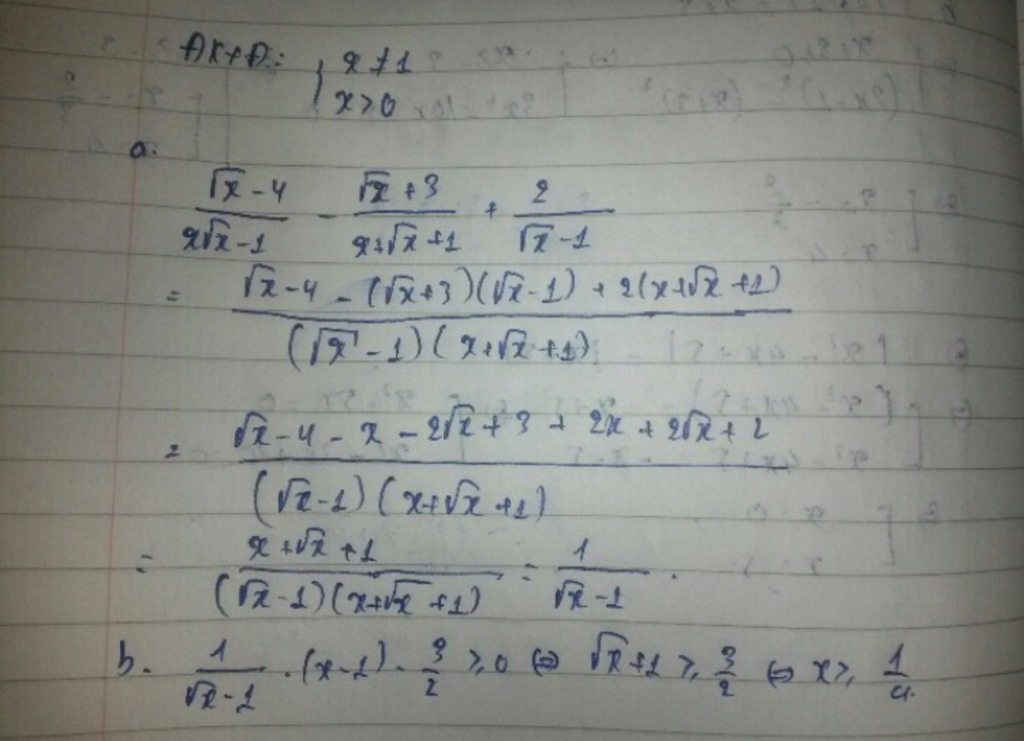 ĐKXĐ: { x ≠ 1
x > 0
a.
(√x - 4)/(x√x - 1) - (√x + 3)/(x + √x + 1) + 2/(√x - 1)
= (√x - 4 - (√x + 3)(√x - 1) + 2(x + √x + 1))/((√x - 1)(x + √x + 1))
= (√x - 4 - x - 2√x + 3 + 2x + 2√x + 2)/((√x - 1)(x + √x + 1))
= (x + √x + 1)/((√x - 1)(x + √x + 1)) = 1/(√x - 1) .
b. 1/(√x - 1) . (x - 1) - 3/2 ≥ 0 ⇔ √x + 1 ≥ 3/2 ⇔ x ≥ 1/4.